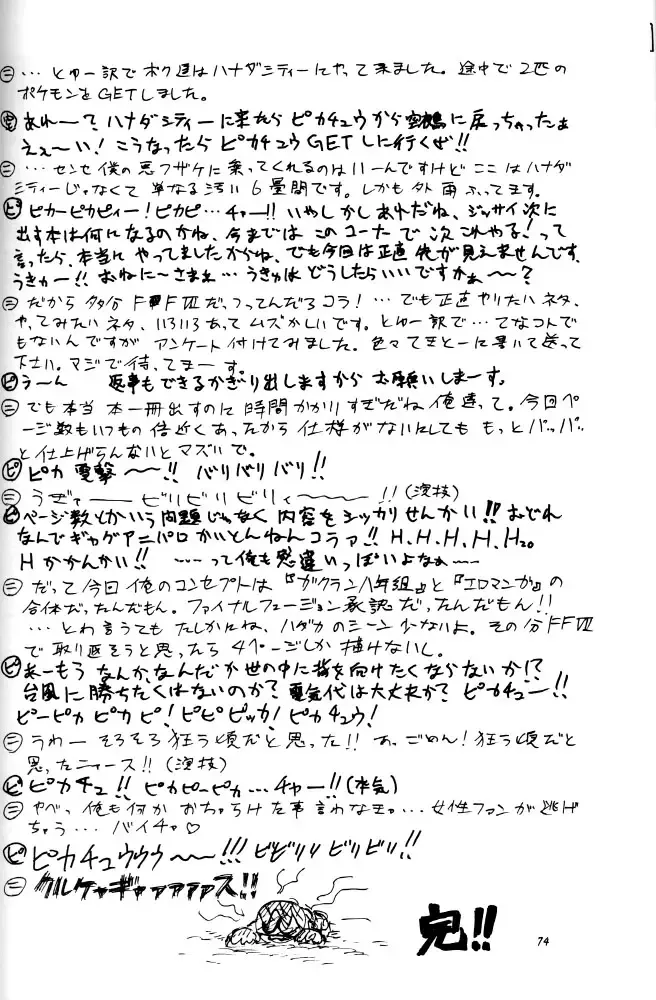 ㊁ …とゆー訳でボク達はハナダシティーにやって来ました。途中で2匹の
ポケモンをGETしました。
あれ〜? ハナダシティーに来たら ピカチュウから空鶴に戻っちゃったぁ
えぇ〜い! こうなったら ピカチュウGETしに行くぜ!!
㊁ …センセ僕の悪フザケに乗ってくれるのはいーんですけど ここはハナダ
シティーじゃなくて 単なる汚い6畳間です。しかも外雨ふってます。
ピ ピカーピカピィー!ピカピ…チャー!! いやしかしあれだね、ジッサイ次に
出す本は何になるのかね、今までは このコーナで 次これやる!って
言ったら、本当に やってましたからね、でも今回は正直 先が見えませんです、
うきゃー!! おねに〜さまぇ…うきゅは どうしたらいいですかぁ〜〜?
㊁ だから 多分 FFⅦだ、つってんだろコラ! …でも正直やりたいネタ、
やってみたいネタ、いろいろあって ムズかしいです。とゆー訳で…てなコトで
もないんですが アンケート付けてみました。色々てきとーに書いて送って
下さい。マジで待ってまーす。
ピ うーん 返事もできるかぎり出しますから お願いしまーす。
㊁ でも本当 本一冊出すのに 時間かかりすぎだね俺達って。今回ペ
ージ数もいつもの倍近くあったから 仕様がないにしても もっとパッパッ
と仕上げらんないとマズいで。
ピ ピカ 電撃 〜〜!! バリバリバリ!!
㊁ うぎゃ――― ビリビリビリビリィ〜〜〜〜!!(演技)
ピ ページ数とかいう問題じゃなく 内容をシッカリせんかい!! おどれ
なんでギャグアニパロ かいとんねんコラァ!! H、H、H、H、H₂₀
Hかかんかい!! ……って俺も思違いっぱいよなぁ〜
㊁ だって今回 俺のコンセプトは『ガクラン八年組』と『エロマンガ』の
合体だったんだもん。ファイナルフュージョン承認だったんだもん!!
…とわ言うても たしかにね、ハダカのシーン少ないよ。その分FFⅦ
で取り返そうと思ったら 4ページしか描けないし。
ピ あーもう なんか、なんだか世の中に背を向けたくならないか!?
台風に勝ちたくはないのか? 電気代は大丈夫か? ピカチュー!!
ピーピカ ピカピ! ピピピッカ! ピカチュウ!
㊁ うわー そろそろ狂う頃だと思った!! あ、ごめん! 狂う頃だと
思ったニャース!! (演技)
ピ ピカチュ!! ピカピーピカ…チャー!!(本気)
㊁ やべっ、俺も何か おちゃらけた事言わなきゃ…女性ファンが逃げ
ちゃう… バイチャ♡
ピ ピカチュウウウ〜〜!!! ビビリリ ビリビリ!!
㊁ クルケャギャァァァァァス!!
完!!
74